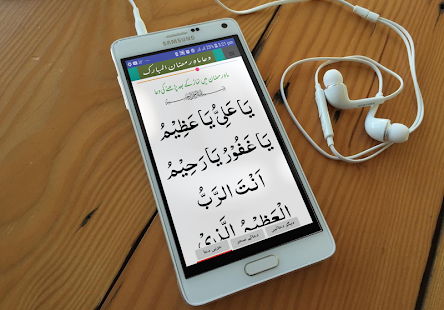 SAMSUNG
دعا ماہ رمضان المبارک
ماہ رمضان میں نماز کے بعد پڑھنے کی دعا
يَا عَلِيُّ يَا عَظِيْمُ
يَا غَفُوْرُ يَا رَحِيْمُ
اَنْتَ الرَّبُّ
الْعَظِيْمُ الَّذِيْ